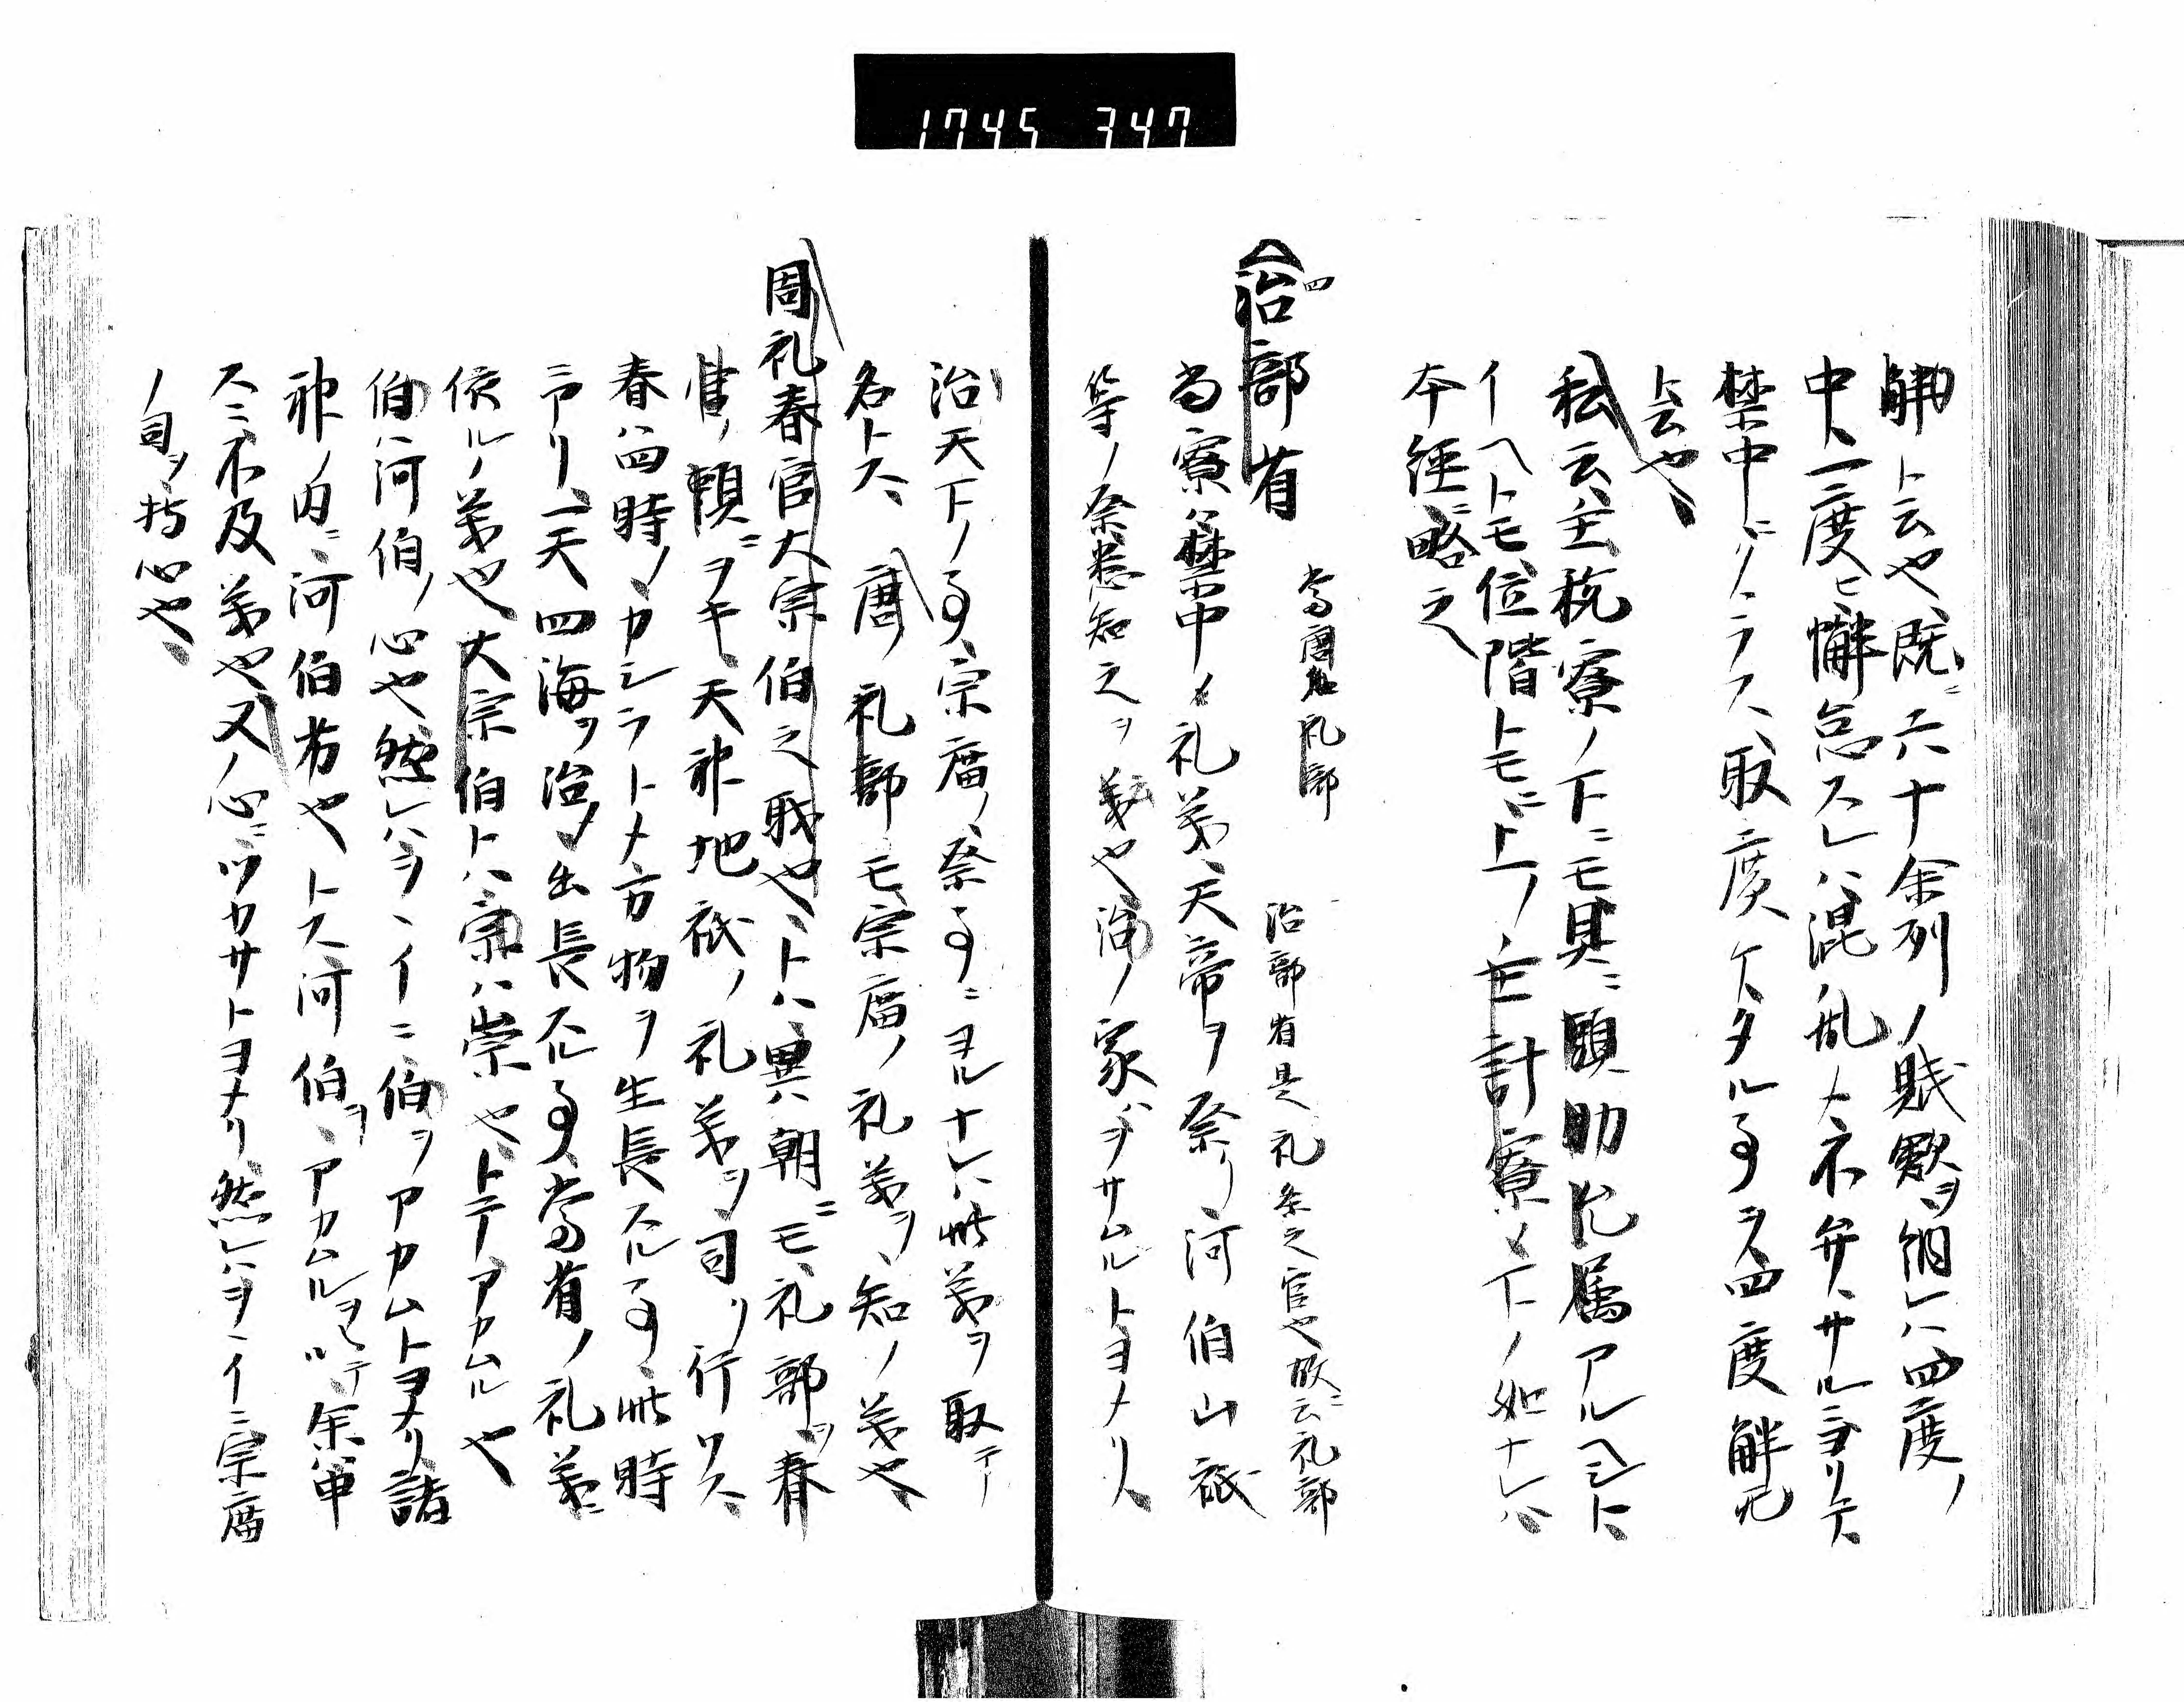 1745 347
解ト云也、既ニ六十余列ノ賊歟ヲ納レハ四度ノ
中、一度ヒ懈怠スレハ混乱〆不弁、サルニヨリテ
禁中ニ
ノラス、取度ケタル事ヲハ四度解冗
ト云也、
私云、主税寮ノ下ニモ具ニ頭助允属アルヘシト
イヘトモ、位階トモニ上ノ主計寮〆下ノ如ナレハ
本経ニ略之
四
治部省 当唐名礼部 治部省是礼祭之官也故ニ云礼部
当寮ハ禁中〆礼義、天帝ヲ祭リ河伯山祇
等ノ祭悉知之ヲ義也、治ノ家ヲサムルトヨメリ、
治天下ノ事、宗廟ノ祭事ニヨルナレハ此義ヲ取テ
名トス、唐ノ礼部モ宗廟ノ礼義ヲ知ノ義也、
周礼春官大宗伯之職也、トハ異ハ朝ニモ礼部ヲ春
官ノ頭ニヲキ、天神地祇ノ礼義ヲ司リ行ワス、
春ハ四時ノカシラトメ方物ヲ生長スル事、此時
ニアリ、一天四海ヲ治メ出長スル事、当省ノ礼義ニ
依ルノ義也、大宗伯トハ宗ハ崇也、トテアカムル也
伯ハ河伯ノ心也、然レハヲヽイニ伯ヲアカムトヨメリ、諸
神ノ内ニ河伯

也トス、河伯ヲアカムルヲモテ余ハ申
スニ不及義也、又ノ心ニツカサトヨメリ、然レハヲヽイニ宗廟
ノ司ヲ指心也、